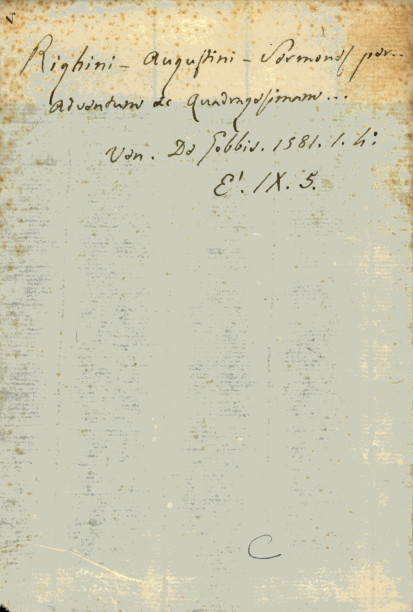 Righini – Augustini – Sermones per...
Adventum ac Quadragesimam...
Ven. De Gobbis. 1581. 1. 4°.
E'. IX. 5.
C